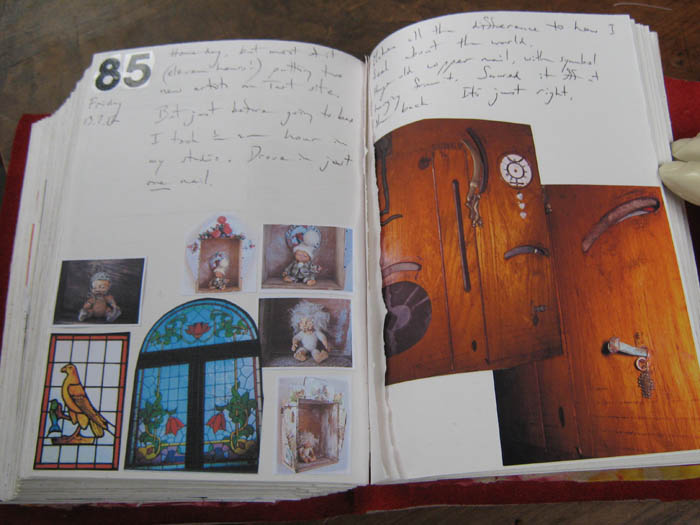 85
Home day, but most of it
(eleven hours!) putting two
new artists on Test site.
Friday
But just before going to bed
I took ½ an hour in
my studio. Drove in just
one nail.
all the difference to how I
feel about the world.
old upper nail, with symbol
Sawed it off at
back It's just right.